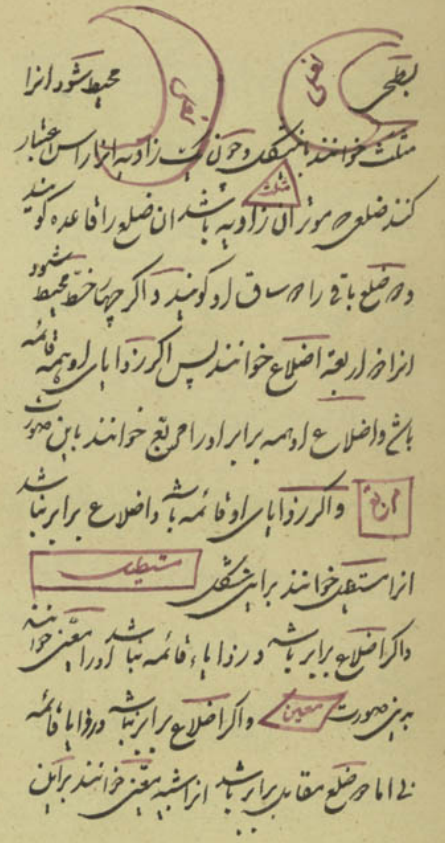 بسطحی نعلی هلالی محیط شود انرا
مثلث خوانند باینشکل و چون یک زاویه انرا راس اعتبار
مثلث
کنند ضلعی که موتر ان زاویه باشد ان ضلع را قاعده کویند
و دو ضلع باقی را دو ساق او کویند و اکر چهار خط محیط شود
انرا ذو اربعة اضلاع خوانند پس اکر زوایای او همه قائمه
باشد و اضلاع او همه برابر او را مربع خوانند باین صورت
مربع و اکر زوایای او قائمه باشد و اضلاع برابر نباشد
انرا مستطیل خوانند براین شکل مستطیل
و اکر اضلاع برابر باشد و زوایاء قائمه نباشد او را معین خوانند
بدین صورت معین و اکر اضلاع برابر نباشد و زوایا قائمه
نی اما دو ضلع مقابل برابر باشد انرا شبیه معین خوانند براین